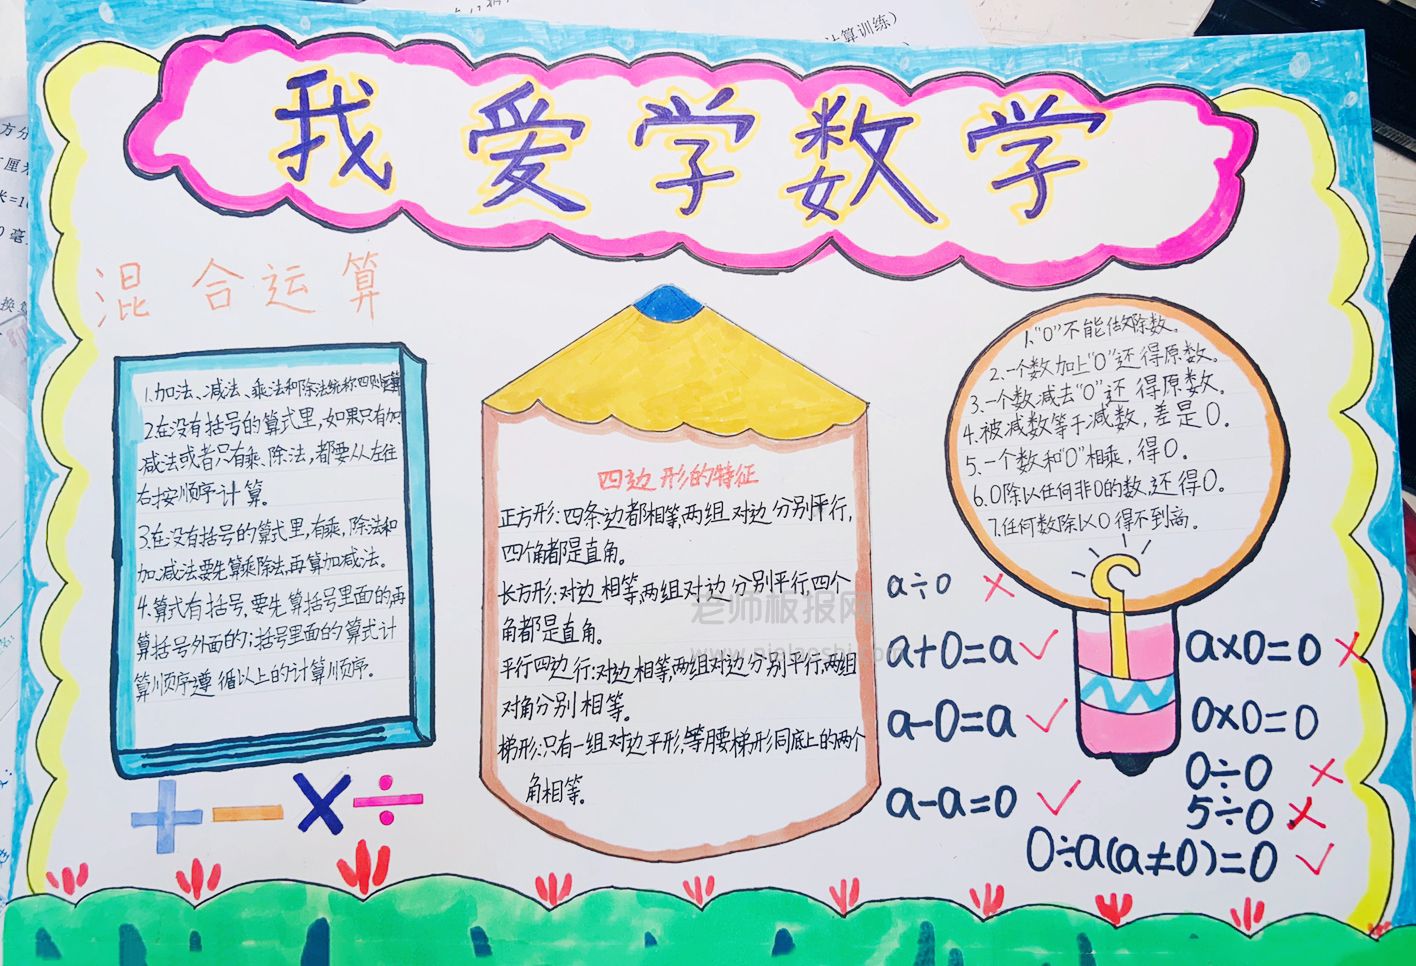 算训练)
方分
厘米
我爱学数学
混合运算
1.加法、减法、乘法和除法统称四则运算
2.在没有括号的算式里,如果只有加
减法或者只有乘、除法,都要从左往
右按顺序计算。
3.在没有括号的算式里,有乘,除法和
加、减法要先算乘除法,再算加减法。
4.算式有括号,要先算括号里面的,再
算括号外面的;括号里面的算式计
算顺序遵循以上的计算顺序。
+ - × ÷
四边形的特征
正方形:四条边都相等,两组对边分别平行,
四个角都是直角。
长方形:对边相等,两组对边分别平行,四个
角都是直角。
平行四边行:对边相等,两组对边分别平行,两组
对角分别相等。
梯形:只有一组对边平形,等腰梯形同底上的两个
角相等。
老师板报网
1、“0”不能做除数。
2、一个数加上“0”还得原数。
3、一个数减去“0”还得原数。
4.被减数等于减数,差是0。
5.一个数和“0”相乘,得0。
6.0除以任何非0的数,还得0。
7.任何数除以0得不到商。
a÷0 ×
a+0=a ✓
a-0=a ✓
a-a=0 ✓
a×0=0 ×
0×0=0
0÷0 ×
5÷0 ×
0÷a(a≠0)=0 ✓